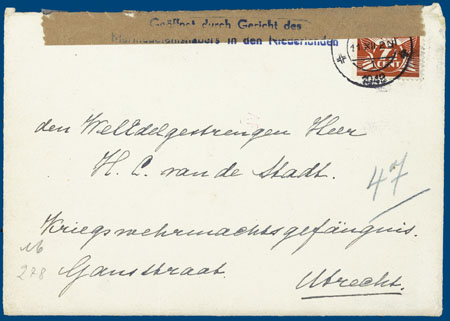 Geöffnet durch Gericht des
in den Niederlanden
7½
CENT
1942
den Weledelgestrengen Heer
H. C. van de Stadt.
47
Kriegswehrmachtsgefängnis.
16
278
Gansstraat
Utrecht.